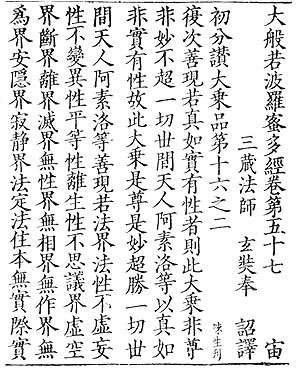 大般若波羅蜜多經卷第五十七 宙
三藏法師 玄奘奉 詔譯
初分讚大乘品第十六之二
復次善現若真如實有性者則此大乘非尊
非妙不超一切世間天人阿素洛等以真如
非實有性故此大乘是尊是妙超勝一切世
間天人阿素洛等善現若法界法性不虛妄
性不變異性平等性離生性不思議界虛空
界斷界離界滅界無性界無相界無作界無
爲界安隱界寂靜界法定法住本無實際實